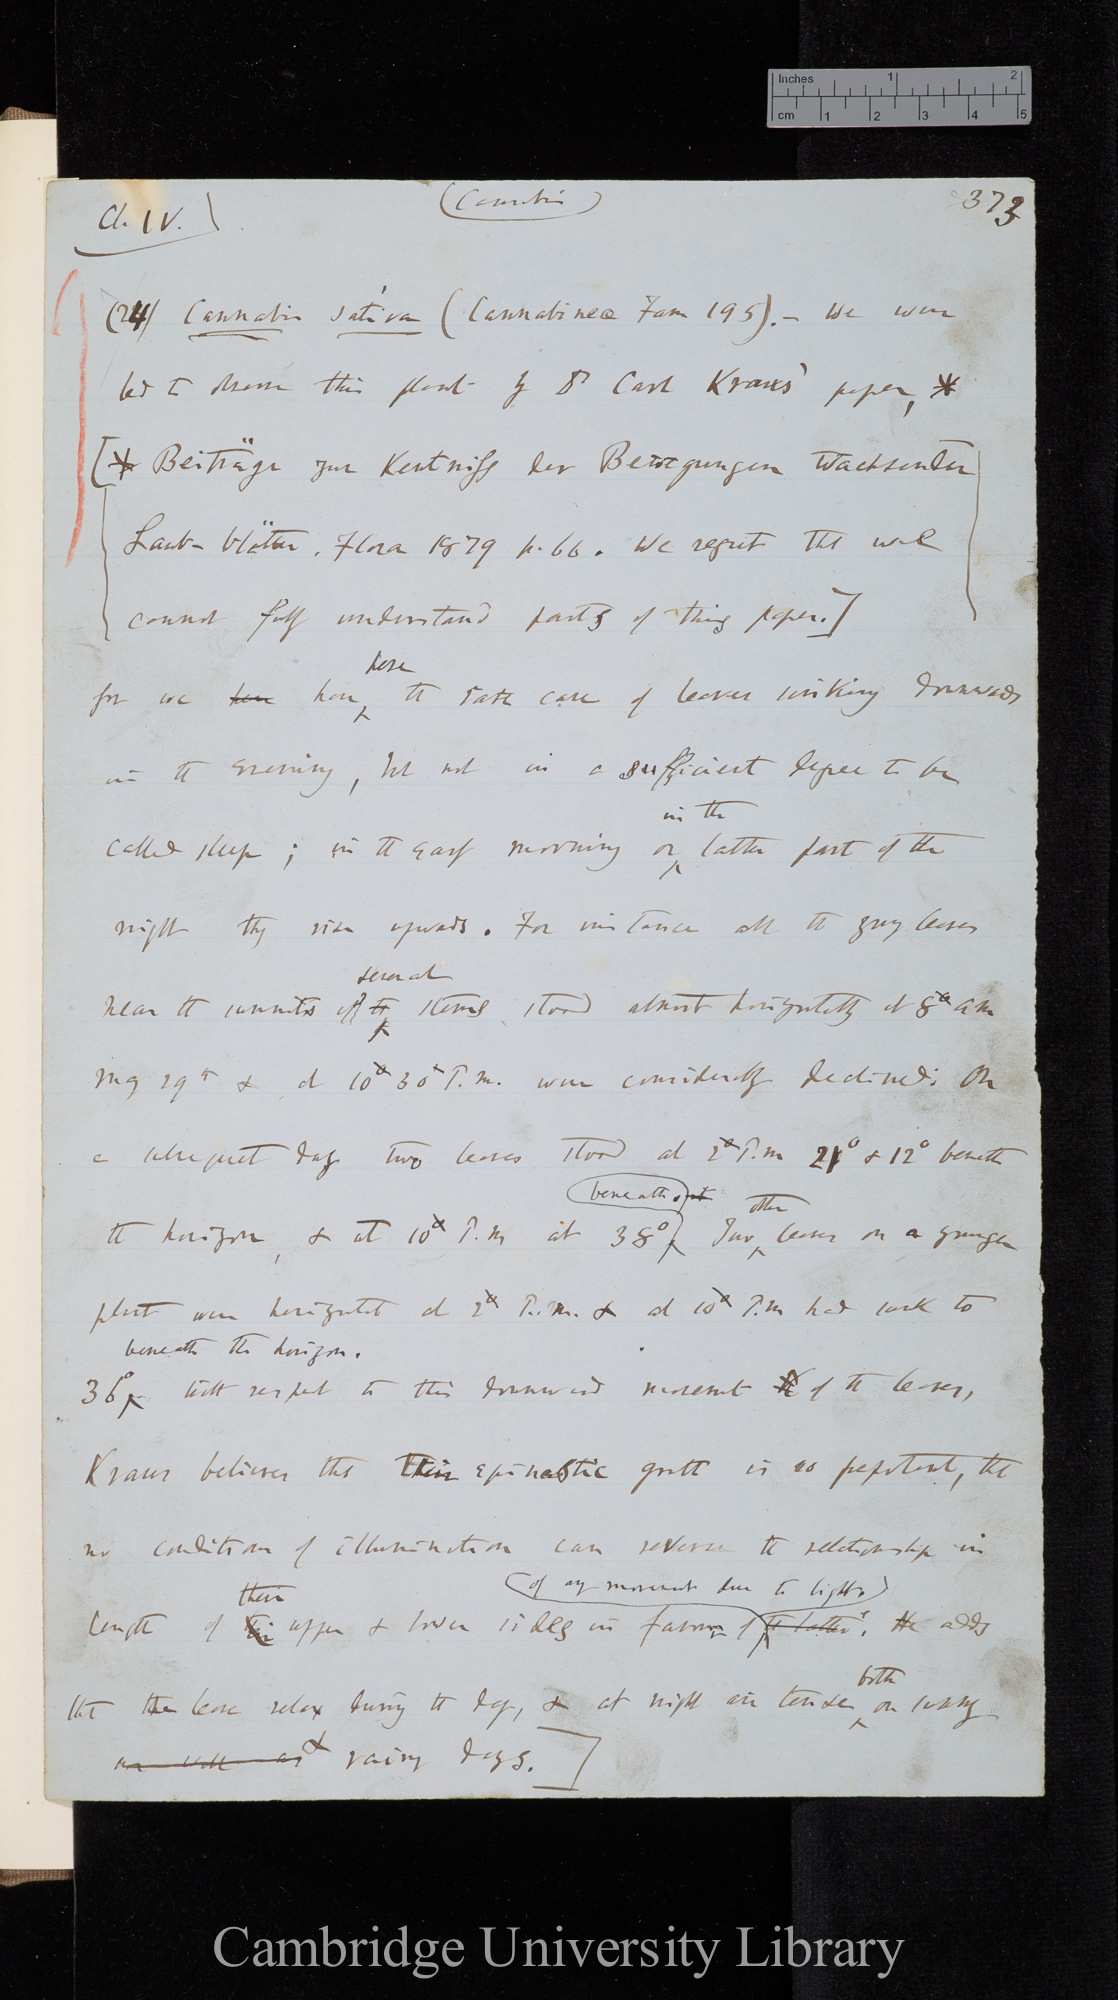 Inches 1 2
cm 1 2 3 4 5
Ch. IV.
(Cannabis)
373
(24) Cannabis sativa (Cannabineæ Fam 195).— We were
led to observe this plant by Dr Carl Kraus' paper, *
[* Beiträge zur Kentniss der Bewegungen Wachsender
Laub-blätter. Flora 1879 p. 66. We regret that we
cannot fully understand parts of this paper.]
here
for we have the rare case of leaves sinking downwards
in the evening, but not in a sufficient degree to be
in the
called sleep; in the early morning or latter part of the
night they rise upwards. For instance all the young leaves
several
near the summits of the stems stood almost horizontally at 8 a m
May 29th & at 10 30 P.m. were considerably declined. On
a subsequent day two leaves stood at 2 P.m 21° & 12° beneath
beneath it
other
the horizon, & at 10 P.m at 38° Two leaves on a younger
plant were horizontal at 2 P.m. & at 10 P.m had sunk to
beneath the horizon.
36° With respect to this downward movement of the leaves,
Kraus believes that their epinastic growth is so that
no condition of illumination can reverse the relationship in
their
(of any movement due to light.)
length of upper & lower sides in favour of the latter. He adds
both
that the leaves relax during the day, & at night are tense on sunny
or well as & rainy days.]
Cambridge University Library